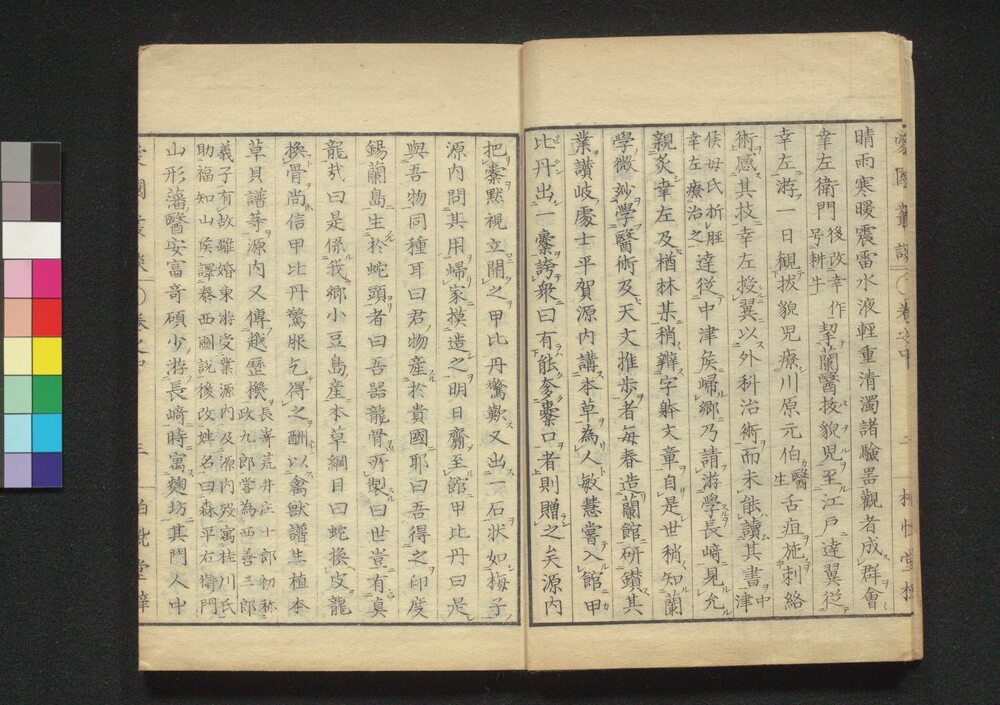 晴雨寒暖震雷水液輕重清濁諸驗噐觀者成群會
幸左衛門後改幸作号耕牛挈蘭醫抜貌児至江戸達翼従
幸左游一日観抜貌児療川原元伯醫生舌疽施刺絡
術感其技幸左授翼以外科治術而未能讀其書中津
侯母氏折脛達従中津侯帰郷乃請游學長﨑見允
幸左療治之
親炙幸左及楢林某稍辯字躰文章自是世稍知蘭
學微妙學醫術及天文推歩者毎春造蘭館研鑚其
業讃岐處士平賀源内講本草為人敏慧嘗入館甲
比丹出一嚢誇衆曰有能發嚢口者則贈之矣源内
把嚢黙視立開之甲比丹驚歎又出一石状如梅子
源内問其用帰家模造之明日齎至館甲比丹曰是
與吾物同種耳曰君物産於貴國耶曰吾得之印度
錫蘭島生於蛇頭者曰吾噐龍骨所製曰世豈有真
龍㢤曰是係我郷小豆島産本草綱目曰蛇換皮龍
換骨尚信甲比丹驚服乞得之酬以禽獸譜生植本
草貝譜等源内又傳越歴機長﨑荒井庄十郎初称政九郎嘗為西善三郎
義子有故離婚東游受業源内及源内歿寓桂川氏
助福知山侯譯泰西圖説後改姓名曰森平右衛門
山形藩醫安富竒碩少游長﨑時寓麹坊其門人中